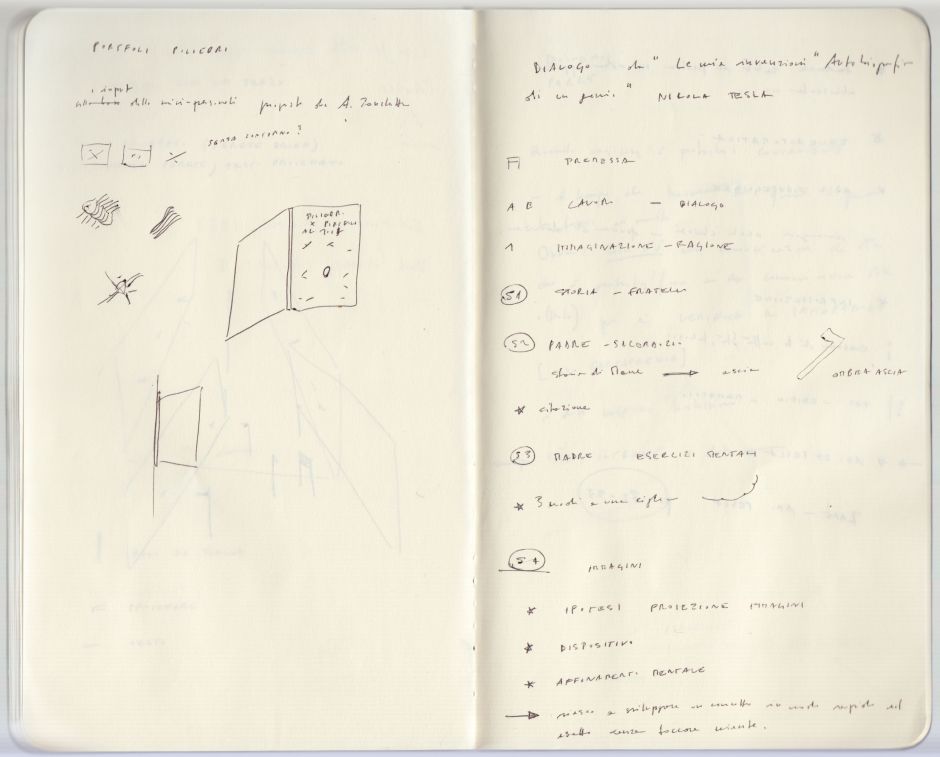 PORTFOLI PILIFORI
input
delle mini-personali proposte da A. Zanchetta
SENZA CONTORNO?
PILIFORI
X PORTFOLI
DIALOGO da "Le mie invenzioni" Autobiografia
di un genio" NIKOLA TESLA
PREMESSA
A B LAVORI - DIALOGO
1 IMMAGINAZIONE - RAGIONE
S1 STORIA - FRATELLI
S2 PADRE - SACERDOZIO
storia di Mane → ascia OMBRA ASCIA
* citazione
S3 MADRE ESERCIZI MENTALI
* 3 nodi a una ciglia
S4 IMMAGINI
* IPOTESI PROIEZIONE IMMAGINI
* DISPOSITIVO
* AFFINAMENTI MENTALE
→ riesco a sviluppare un concetto in modo rapido ed
esatto senza toccare niente.